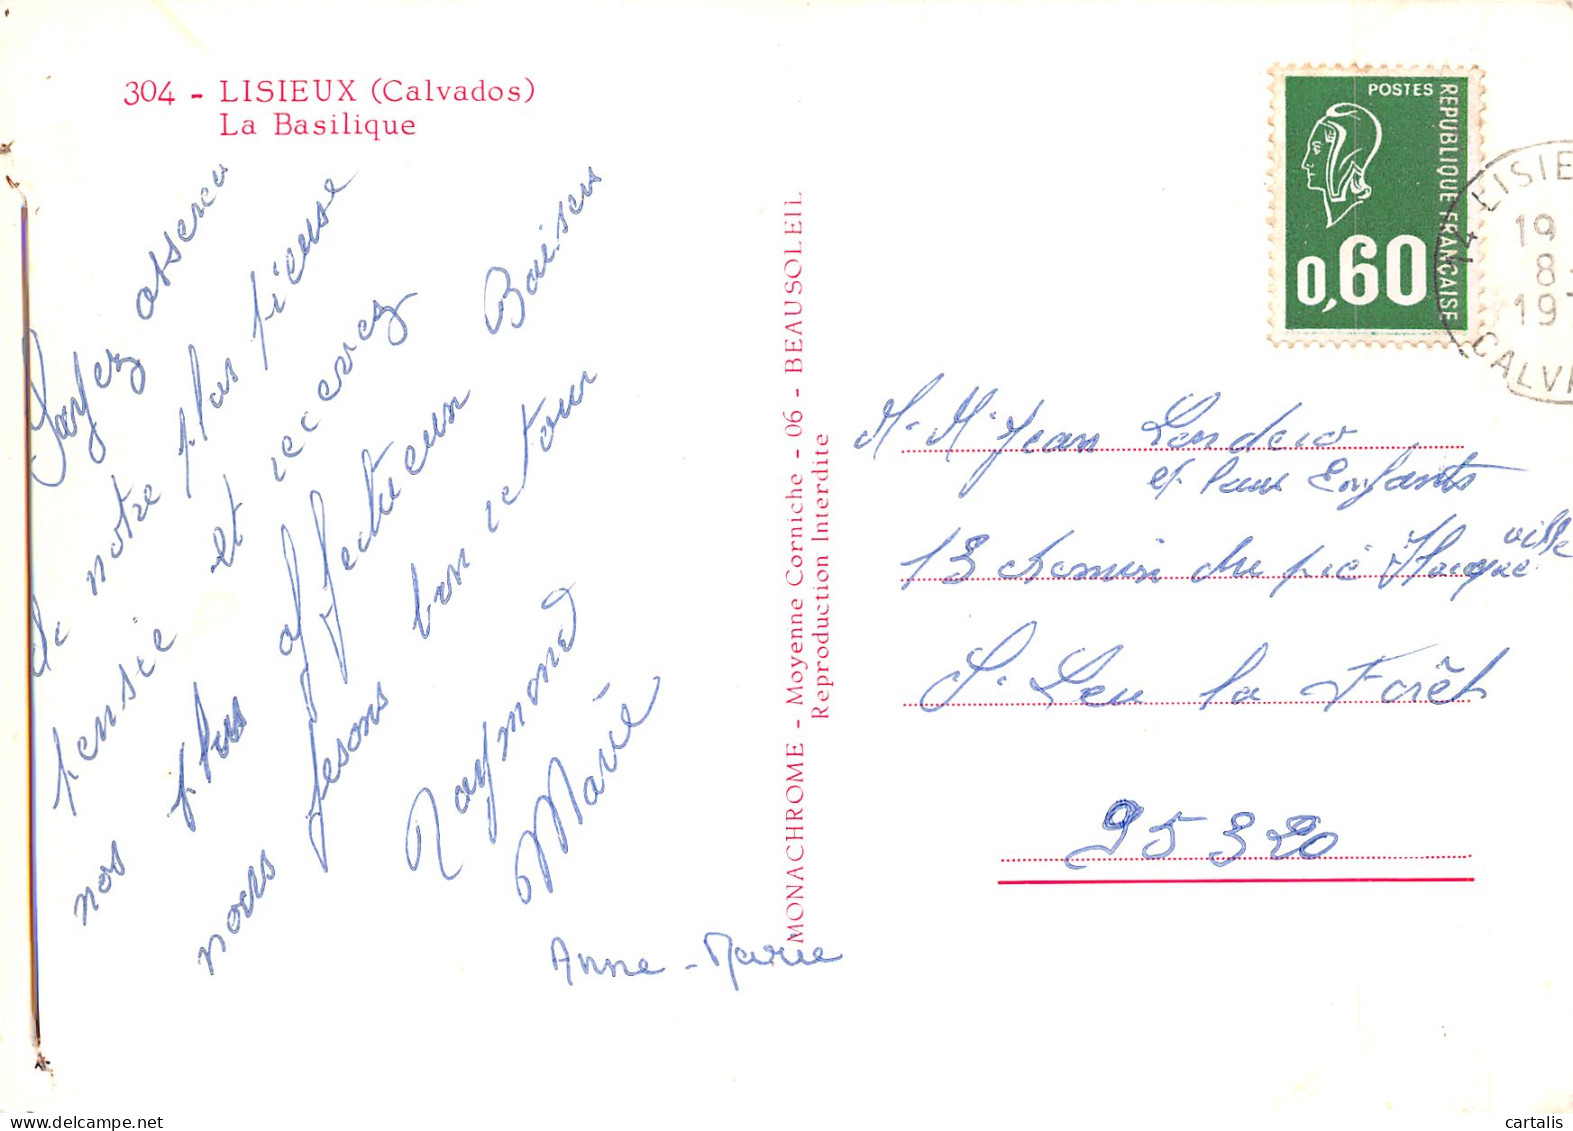 304 - LISIEUX (Calvados)
La Basilique
Soyez assurés
de notre plus pieuse
pensée et recevez
nos plus affectueux Baisers
nous fesons bon retour
Raymond
Marie
Anne-Marie
MONACHROME - Moyenne Corniche - 06 - BEAUSOLEIL
Reproduction Interdite
POSTES
REPUBLIQUE FRANÇAISE
0,60
14 LISIE
19
8-
19
CALV
M. Mᵉ Jean
et leurs Enfants
13 chemin du pré
ville
Sᵗ Leu la Forêt
95320
cartalis
delcampe.net